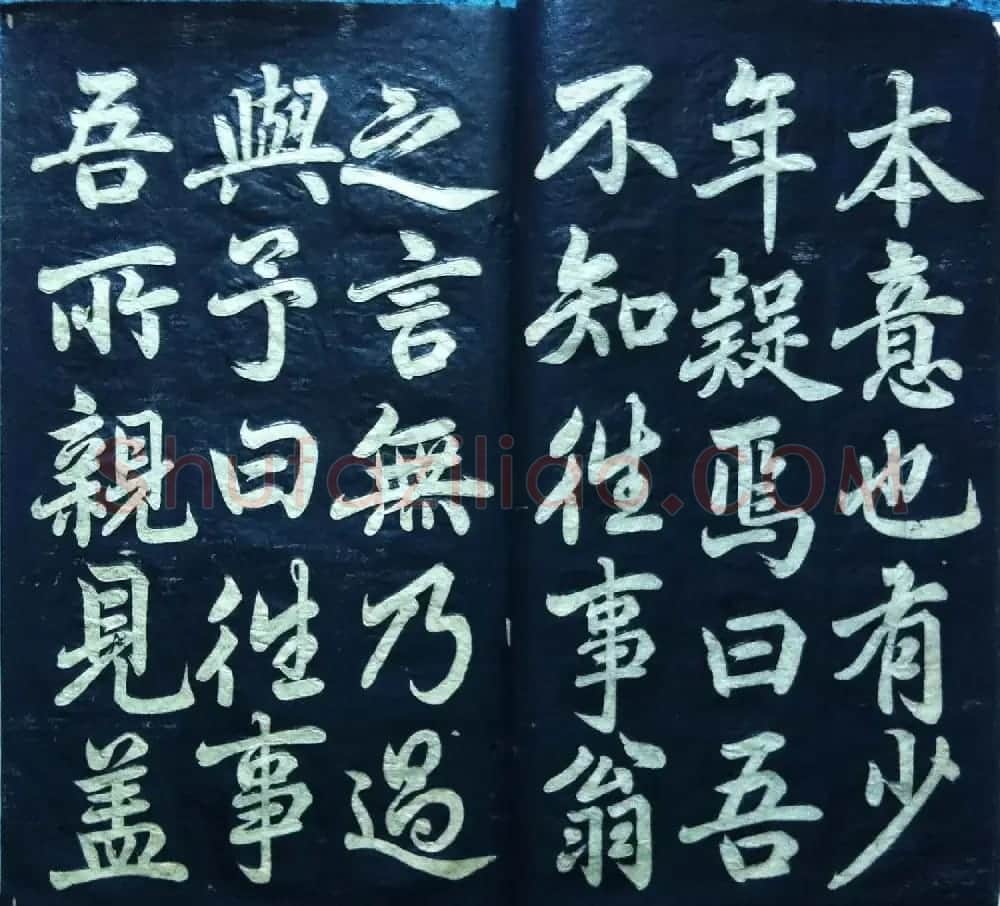 本意也有少
年疑焉曰吾
不知徃事翁
之言無乃過
與予曰徃事
吾所親見盖
Shufaziliao.COM